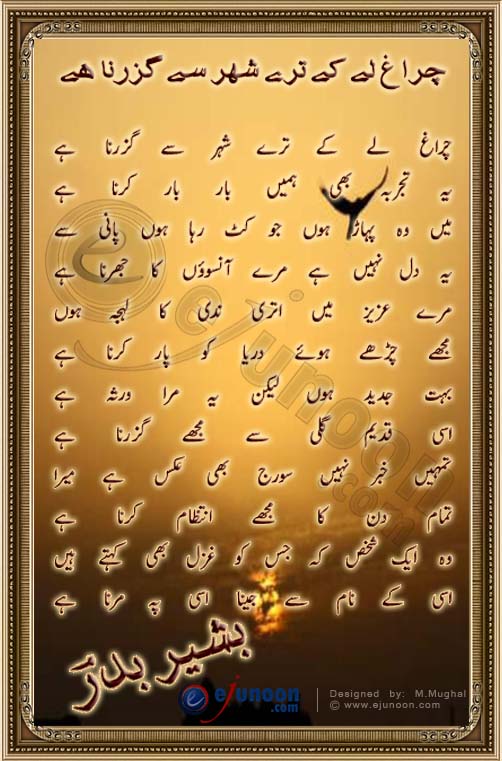 چراغ لے کے ترے شہر سے گزرنا ہے
چراغ لے کے ترے شہر سے گزرنا ہے
یہ تجربہ بھی ہمیں بار بار کرنا ہے
میں وہ پہاڑ ہوں جو کٹ رہا ہوں پانی سے
یہ دل نہیں ہے مرے آنسوؤں کا جھرنا ہے
مرے عزیز میں اتری ندی کا لہجہ ہوں
مجھے چڑھے ہوئے دریا کو پار کرنا ہے
بہت جدید ہوں لیکن یہ مرا ورثہ ہے
اسی قدیم گلی سے مجھے گزرنا ہے
تمہیں خبر نہیں سورج بھی عکس ہے میرا
تمام دن کا مجھے انتظام کرنا ہے
وہ ایک شخص کہ جس کو غزل بھی کہتے ہیں
اسی کے نام سے جینا اسی پہ مرنا ہے
بشیر بدر
ejunoon.com
e ejunoon .com
Designed by: M.Mughal
© www.ejunoon.com